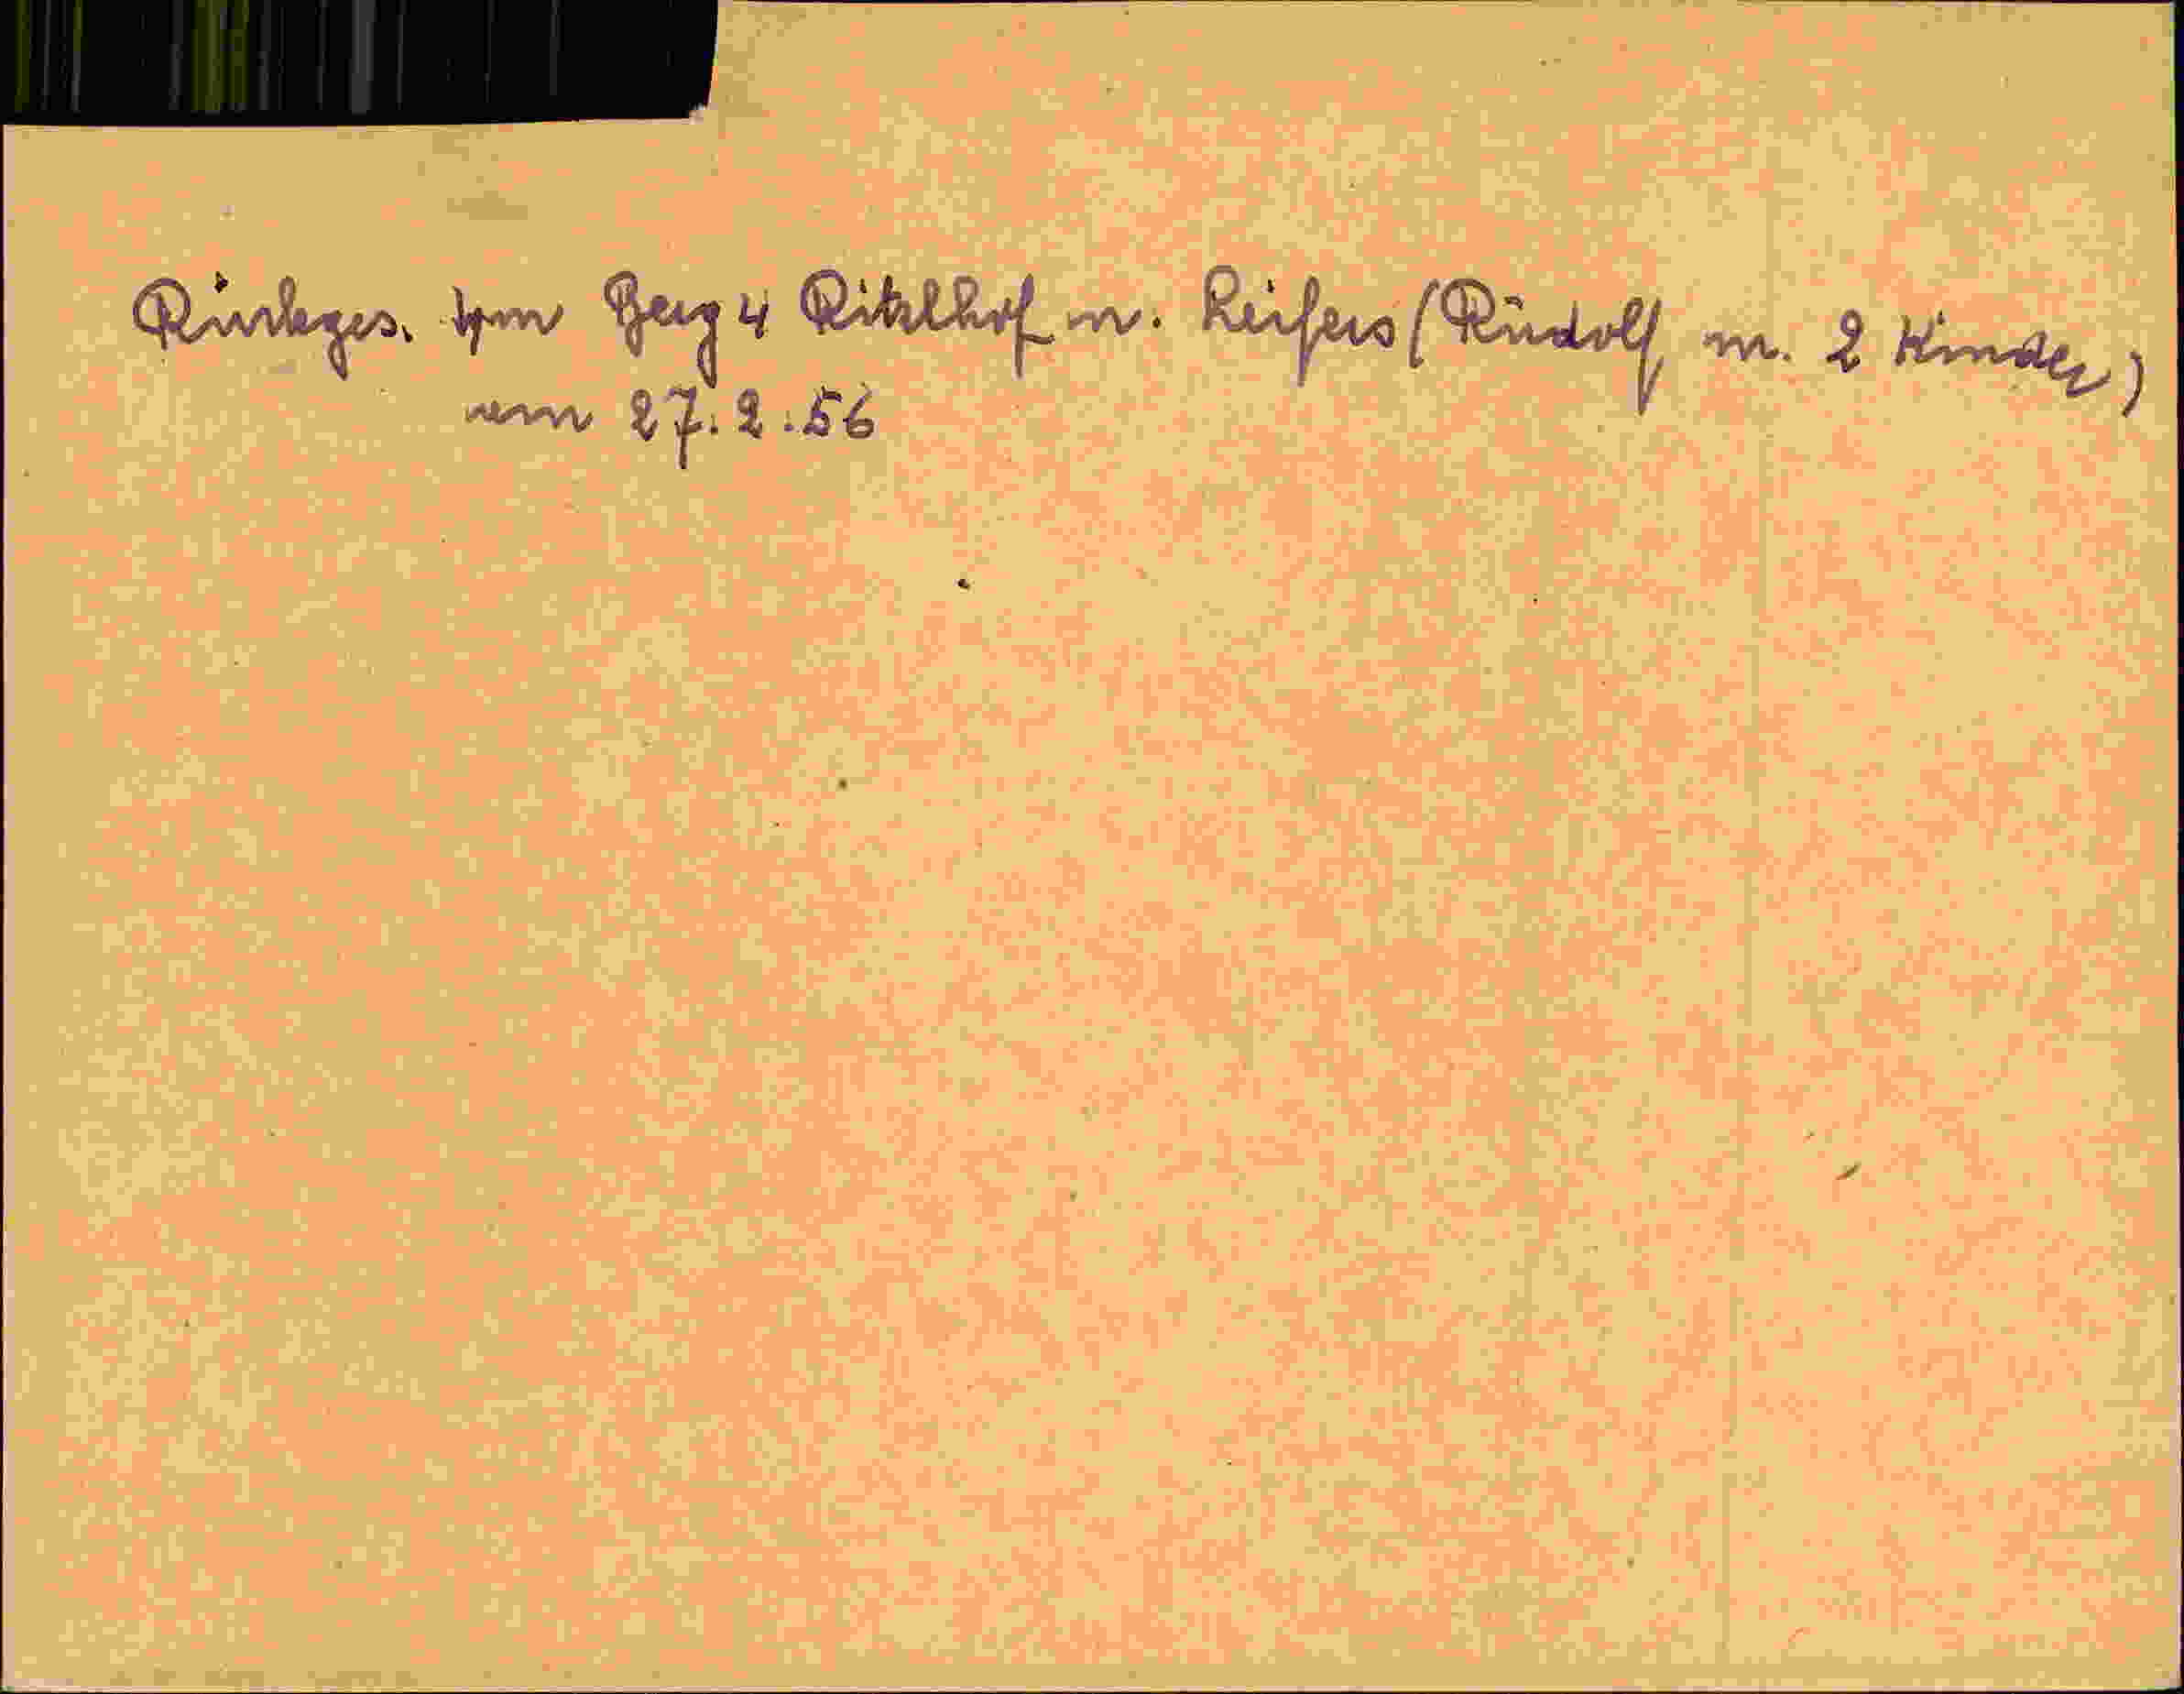 Rückges. vom Berg 4 Ritzlhof n. Leifers (Rudolf m. 2 Kinder)
vom 27.2.56